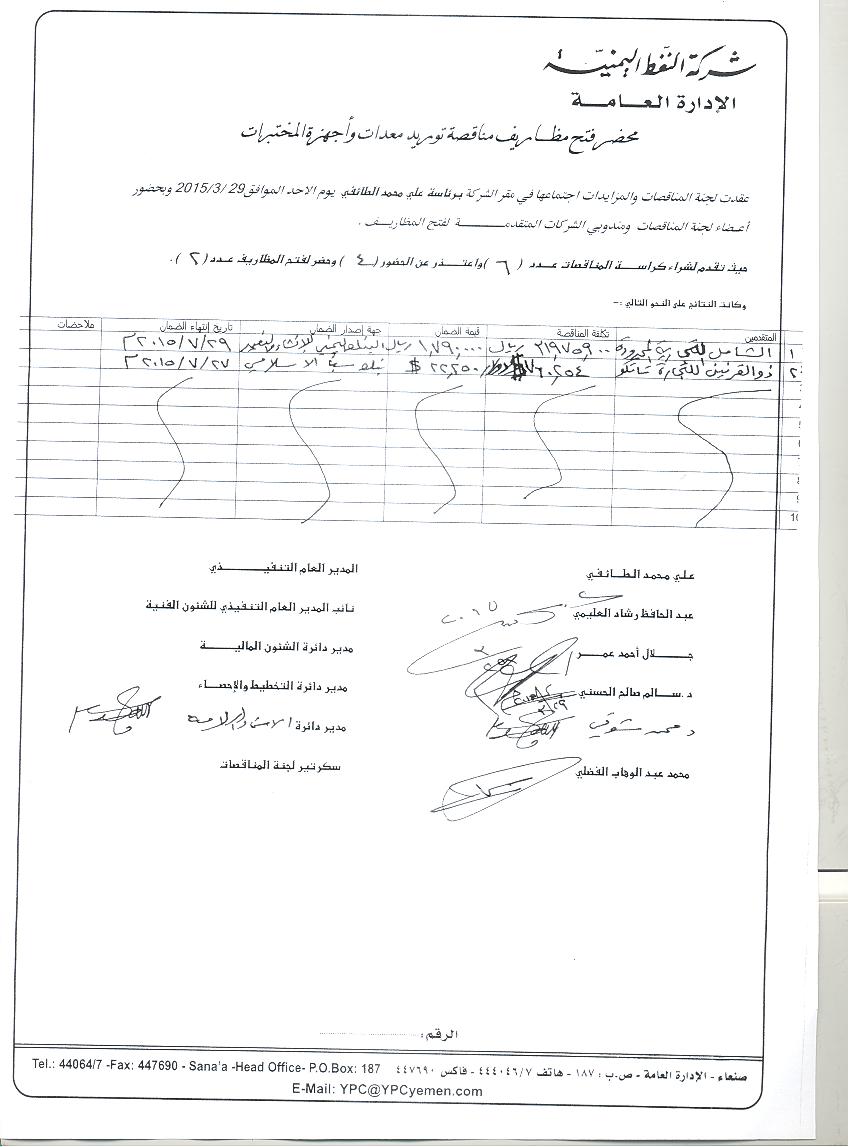 شركة النفط اليمنية
الإدارة العامة
محضر فتح مظاريف مناقصة توريد معدات وأجهزة المختبرات
عقدت لجنة المناقصات والمزايدات اجتماعها في مقر الشركة برئاسة علي محمد الطائفي يوم الاحد الموافق 2015/3/29 وبحضور
أعضاء لجنة المناقصات ومندوبي الشركات المتقدمة لفتح المظاريف .
حيث تقدم لشراء كراسة المناقصات عدد (٦) واعتذر عن الحضور (٤) وحضر لفتح المظاريف عدد (٢).
وكانت النتائج على النحو التالي :-
المتقدمين تكلفة المناقصة قيمة الضمان جهة إصدار الضمان تاريخ إنتهاء الضمان ملاحضات
1 الشامل للتجارية المحدودة ريال ١,٧٩٠,٠٠٠ ريال البنك اليمني للإنشاء والتعمير ٢٠١٥/٧/٢٩م
2 ذوالقرنين للتجارة ٢٢,٢٥٠ $ بنك سبأ الاسلامي ٢٠١٥/٧/٢٧م
3
4
5
6
7
8
9
10
علي محمد الطائفي المدير العام التنفيذي
عبد الحافظ رشاد العليمي نائب المدير العام التنفيذي للشئون الفنية
جلال أحمد عمر مدير دائرة الشئون المالية
د.سالم صالح الحسني مدير دائرة التخطيط والإحصاء
د محمد شوقي مدير دائرة
محمد عبد الوهاب الفضلي سكرتير لجنة المناقصات
الرقم:
صنعاء - الإدارة العامة - ص.ب : ١٨٧ - هاتف ٤٤٤٠٤٦/٧ - فاكس ٤٤٧٦٩٠ Tel.: 44064/7 -Fax: 447690 - Sana'a -Head Office- P.O.Box: 187
E-Mail: YPC@YPCyemen.com